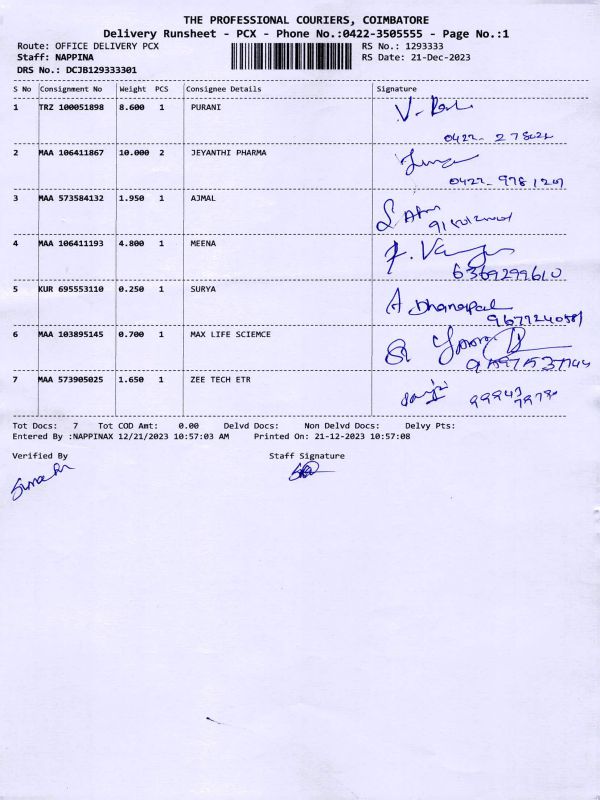 THE PROFESSIONAL COURIERS, COIMBATORE
Delivery Runsheet - PCX - Phone No.:0422-3505555 - Page No.:1
Route: OFFICE DELIVERY PCX RS No.: 1293333
Staff: NAPPINA RS Date: 21-Dec-2023
DRS No.: DCJB129333301
S No Consignment No Weight PCS Consignee Details Signature
1 TRZ 100051898 8.600 1 PURANI
2 MAA 106411867 10.000 2 JEYANTHI PHARMA
3 MAA 573584132 1.950 1 AJMAL
4 MAA 106411193 4.800 1 MEENA
6369299610
5 KUR 695553110 0.250 1 SURYA
A Dhanapal
9677240581
6 MAA 103895145 0.700 1 MAX LIFE SCIEMCE
7 MAA 573905025 1.650 1 ZEE TECH ETR
Tot Docs: 7 Tot COD Amt: 0.00 Delvd Docs: Non Delvd Docs: Delvy Pts:
Entered By :NAPPINAX 12/21/2023 10:57:03 AM Printed On: 21-12-2023 10:57:08
Verified By Staff Signature